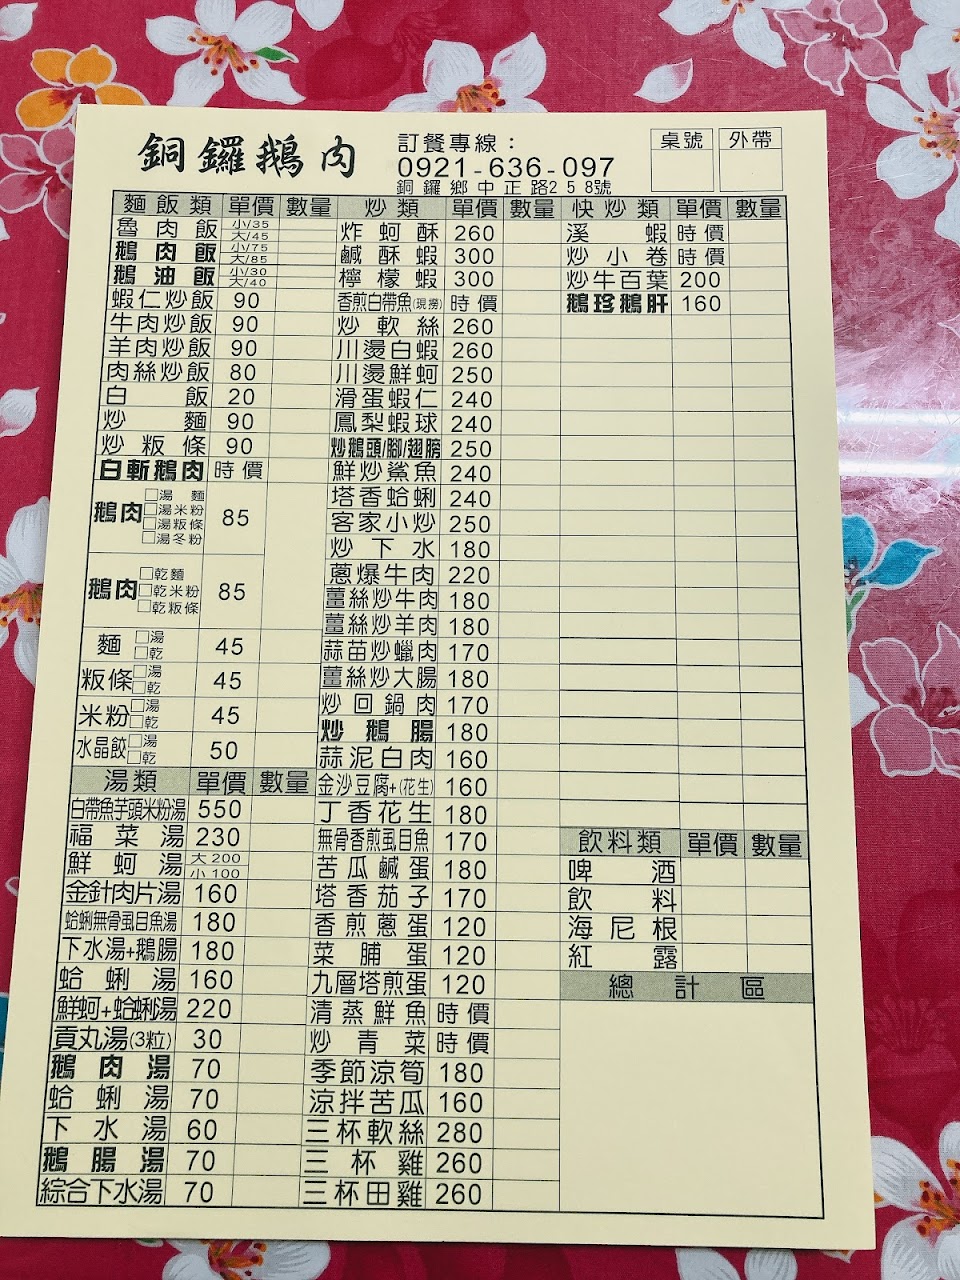 銅鑼鵝肉
訂餐專線：
0921-636-097
銅鑼鄉中正路258號
桌號 外帶
麵飯類 單價 數量
魯肉飯 小/35 大/45
鵝肉飯 小/75 大/85
鵝油飯 小/30 大/40
蝦仁炒飯 90
牛肉炒飯 90
羊肉炒飯 90
肉絲炒飯 80
白飯 20
炒麵 90
炒粄條 90
白斬鵝肉 時價
鵝肉 □湯麵 □湯米粉 □湯粄條 □湯冬粉 85
鵝肉 □乾麵 □乾米粉 □乾粄條 85
麵 □湯 □乾 45
粄條 □湯 □乾 45
米粉 □湯 □乾 45
水晶餃 □湯 □乾 50
湯類 單價 數量
白帶魚芋頭米粉湯 550
福菜湯 230
鮮蚵湯 大200 小100
金針肉片湯 160
蛤蜊無骨虱目魚湯 180
下水湯+鵝腸 180
蛤蜊湯 160
鮮蚵+蛤蜊湯 220
貢丸湯(3粒) 30
鵝肉湯 70
蛤蜊湯 70
下水湯 60
鵝腸湯 70
綜合下水湯 70
炒類 單價 數量
炸蚵酥 260
鹹酥蝦 300
檸檬蝦 300
香煎白帶魚(現撈) 時價
炒軟絲 260
川燙白蝦 260
川燙鮮蚵 250
滑蛋蝦仁 240
鳳梨蝦球 240
炒鵝頭/腳/翅膀 250
鮮炒鯊魚 240
塔香蛤蜊 240
客家小炒 250
炒下水 180
蔥爆牛肉 220
薑絲炒牛肉 180
薑絲炒羊肉 180
蒜苗炒蠟肉 170
薑絲炒大腸 180
炒回鍋肉 170
炒鵝腸 180
蒜泥白肉 160
金沙豆腐+(花生) 160
丁香花生 180
無骨香煎虱目魚 170
苦瓜鹹蛋 180
塔香茄子 170
香煎蔥蛋 120
菜脯蛋 120
九層塔煎蛋 120
清蒸鮮魚 時價
炒青菜 時價
季節涼筍 180
涼拌苦瓜 160
三杯軟絲 280
三杯雞 260
三杯田雞 260
快炒類 單價 數量
溪蝦 時價
炒小卷 時價
炒牛百葉 200
鵝珍鵝肝 160
飲料類 單價 數量
啤酒
飲料
海尼根
紅露
總計區